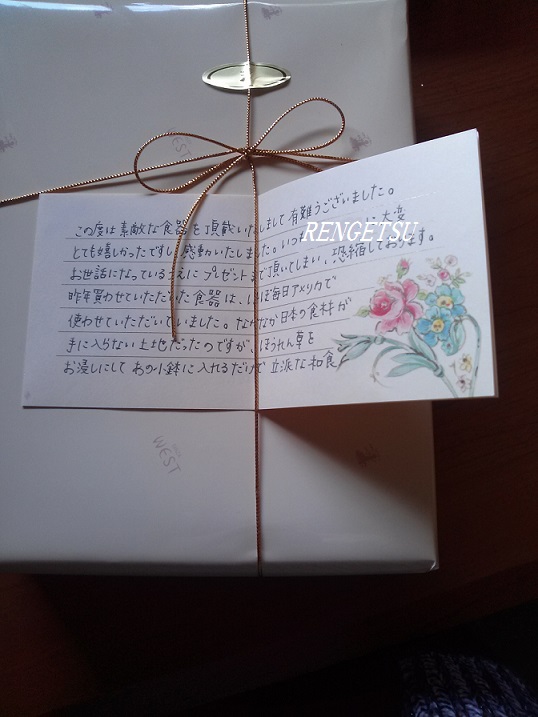 この度は素敵な食器を頂戴いたしまして有難うございました。
とても嬉しかったですし感動いたしました。いつ に大変
RENGETSU
お世話になっているうえにプレゼントまで頂いてしまい、恐縮しております。
昨年買わせていただいた食器は、ほぼ毎日アメリカで
使わせていただいていました。なかなか日本の食材が
手に入らない土地だったのですが、ほうれん草を
お浸しにしてあの小鉢に入れるだけで立派な和食
WEST